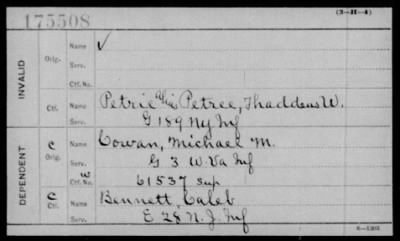 175508
(3—H—4)
INVALID
Orig. Name ✓
Serv.
Ctf. No.
Ctf. Name Petrie alias Petree, Thaddeus W.
Serv. G 189 Ny Inf
DEPENDENT
C Orig. Name Cowan, Michael M.
Serv. G 3 W. Va Inf
W Ctf. No. 61537 sup
C Ctf. Name Bennett, Caleb
Serv. E 28 N. J. Inf